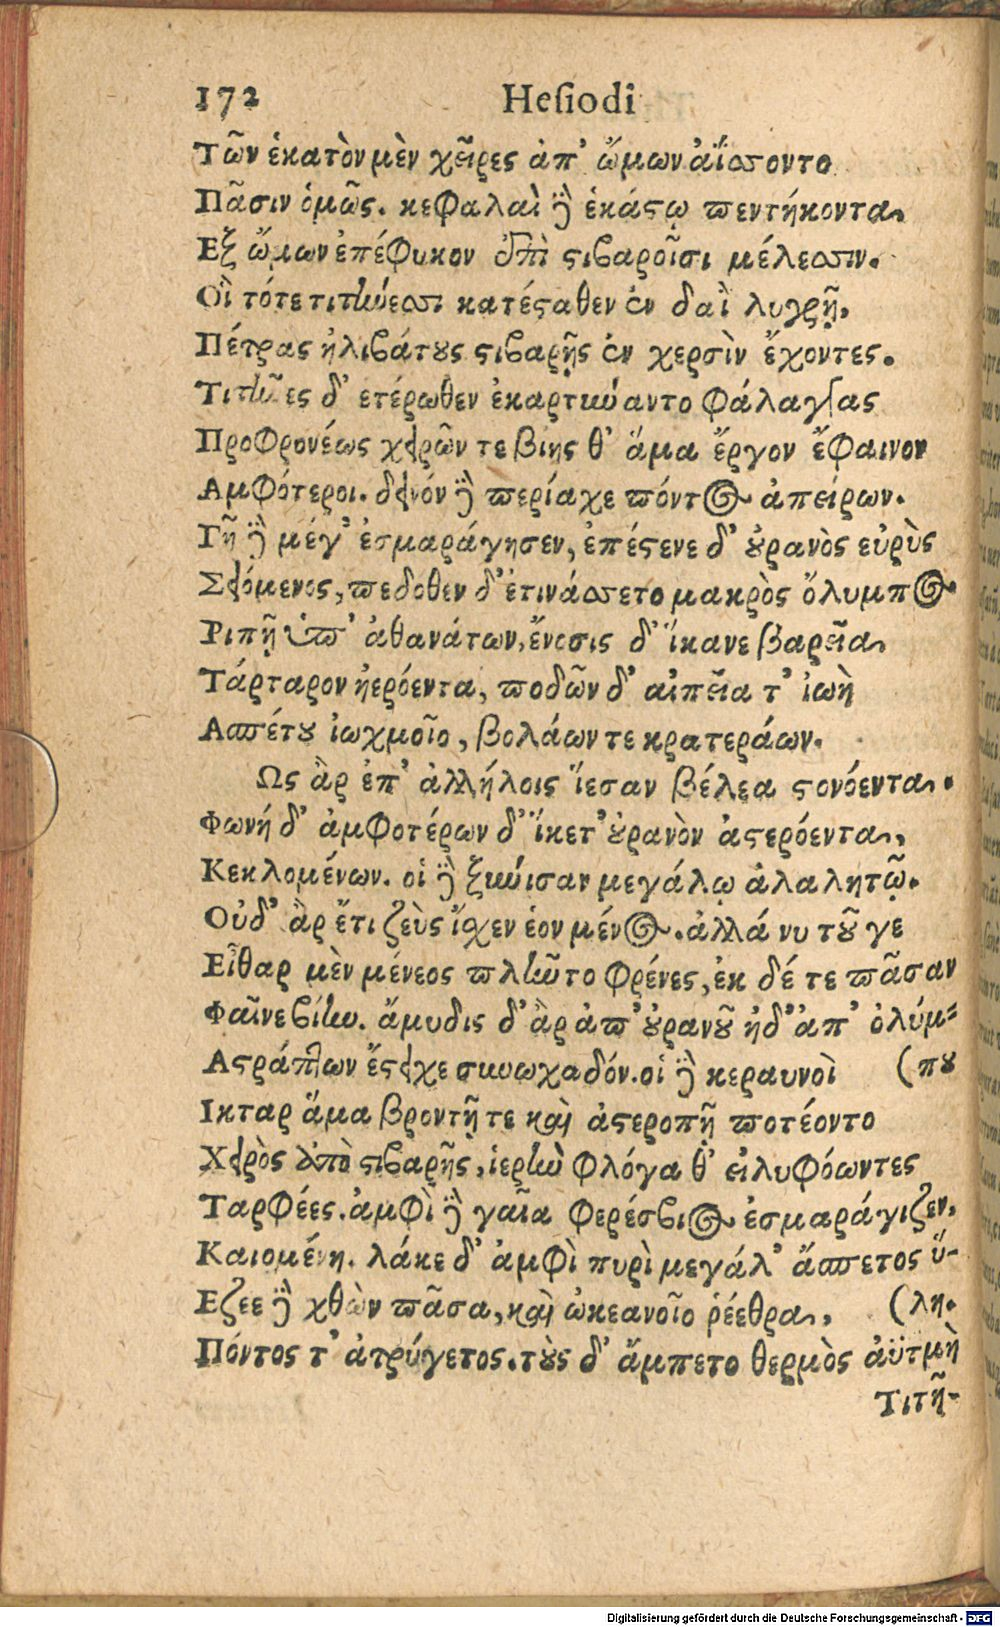 172 Hesiodi
Τῶν ἑκατὸν μὲν χεῖρες ἀπ' ὤμων ἀΐσσοντο
Πᾶσιν ὁμῶς. κεφαλαὶ δὲ ἑκάστῳ πεντήκοντα
Εξ ὤμων ἐπέφυκον ἐπὶ στιβαροῖσι μέλεσσιν.
Οἳ τότε τιτήνεσσι κατέσταθεν ἐν δαῒ λυγρῇ,
Πέτρας ἠλιβάτους στιβαρῇς ἐν χερσὶν ἔχοντες.
Τιτῆνες δ' ετέρωθεν ἐκαρτύναντο φάλαγγας
Προφρονέως χειρῶν τε βιης θ' ἅμα ἔργον ἔφαινον
Αμφότεροι. δεινόν δὲ περίαχε πόντος ἀπείρων.
Γῆ δὲ μέγ' ἐσμαράγησεν, ἐπέστενε δ' οὐρανὸς εὐρὺς
Σειόμενος, πεδοθεν δ' ἐτινάσσετο μακρὸς ὄλυμπος
Ριπῇ ὑπ' ἀθανάτων, ἔνοσις δ' ἵκανε βαρεῖα
Τάρταρον ἠερόεντα, ποδῶν δ' αἰπεῖα τ' ἰωὴ
Ασπέτου ἰωχμοῖο, βολάων τε κρατεράων.
Ως ἂρ ἐπ' ἀλλήλοις ἵεσαν βέλεα στονόεντα.
Φωνή δ' ἀμφοτέρων δ' ἵκετ' οὐρανὸν ἀστερόεντα,
Κεκλομένων. οἱ δὲ ξύνισαν μεγάλῳ ἀλαλητῷ.
Οὐδ' ἂρ ἔτι ζεὺς ἴσχεν ἑον μένος. ἀλλά νυ τοῦ γε
Εἶθαρ μὲν μένεος πλῆντο φρένες, ἐκ δέ τε πᾶσαν
Φαῖνε βίην. ἄμυδις δ' ἂρ ἀπ' οὐρανοῦ ἠδ' ἀπ' ὀλύμ-
Αστράπτων ἔστειχε συνωχαδόν. οἱ δὲ κεραυνοὶ (που
Ικταρ ἅμα βροντῇ τε καὶ ἀστεροπῇ ποτέοντο
Χειρὸς ἀπὸ στιβαρῆς, ἱερὴν φλόγα θ' εἰλυφόωντες
Ταρφέες. ἀμφὶ δὲ γαῖα φερέσβιος ἐσμαράγιζεν,
Καιομένη. λάκε δ' ἀμφὶ πυρὶ μεγάλ' ἄσπετος ὕ-
Εζεε δὲ χθὼν πᾶσα, καὶ ὠκεανοῖο ῥέεθρα, (λη.
Πόντος τ' ἀτρύγετος. τοὺς δ' ἄμπετο θερμὸς ἀϋτμὴ
Τιτῆ-
Digitalisierung gefördert durch die Deutsche Forschungsgemeinschaft - DFG